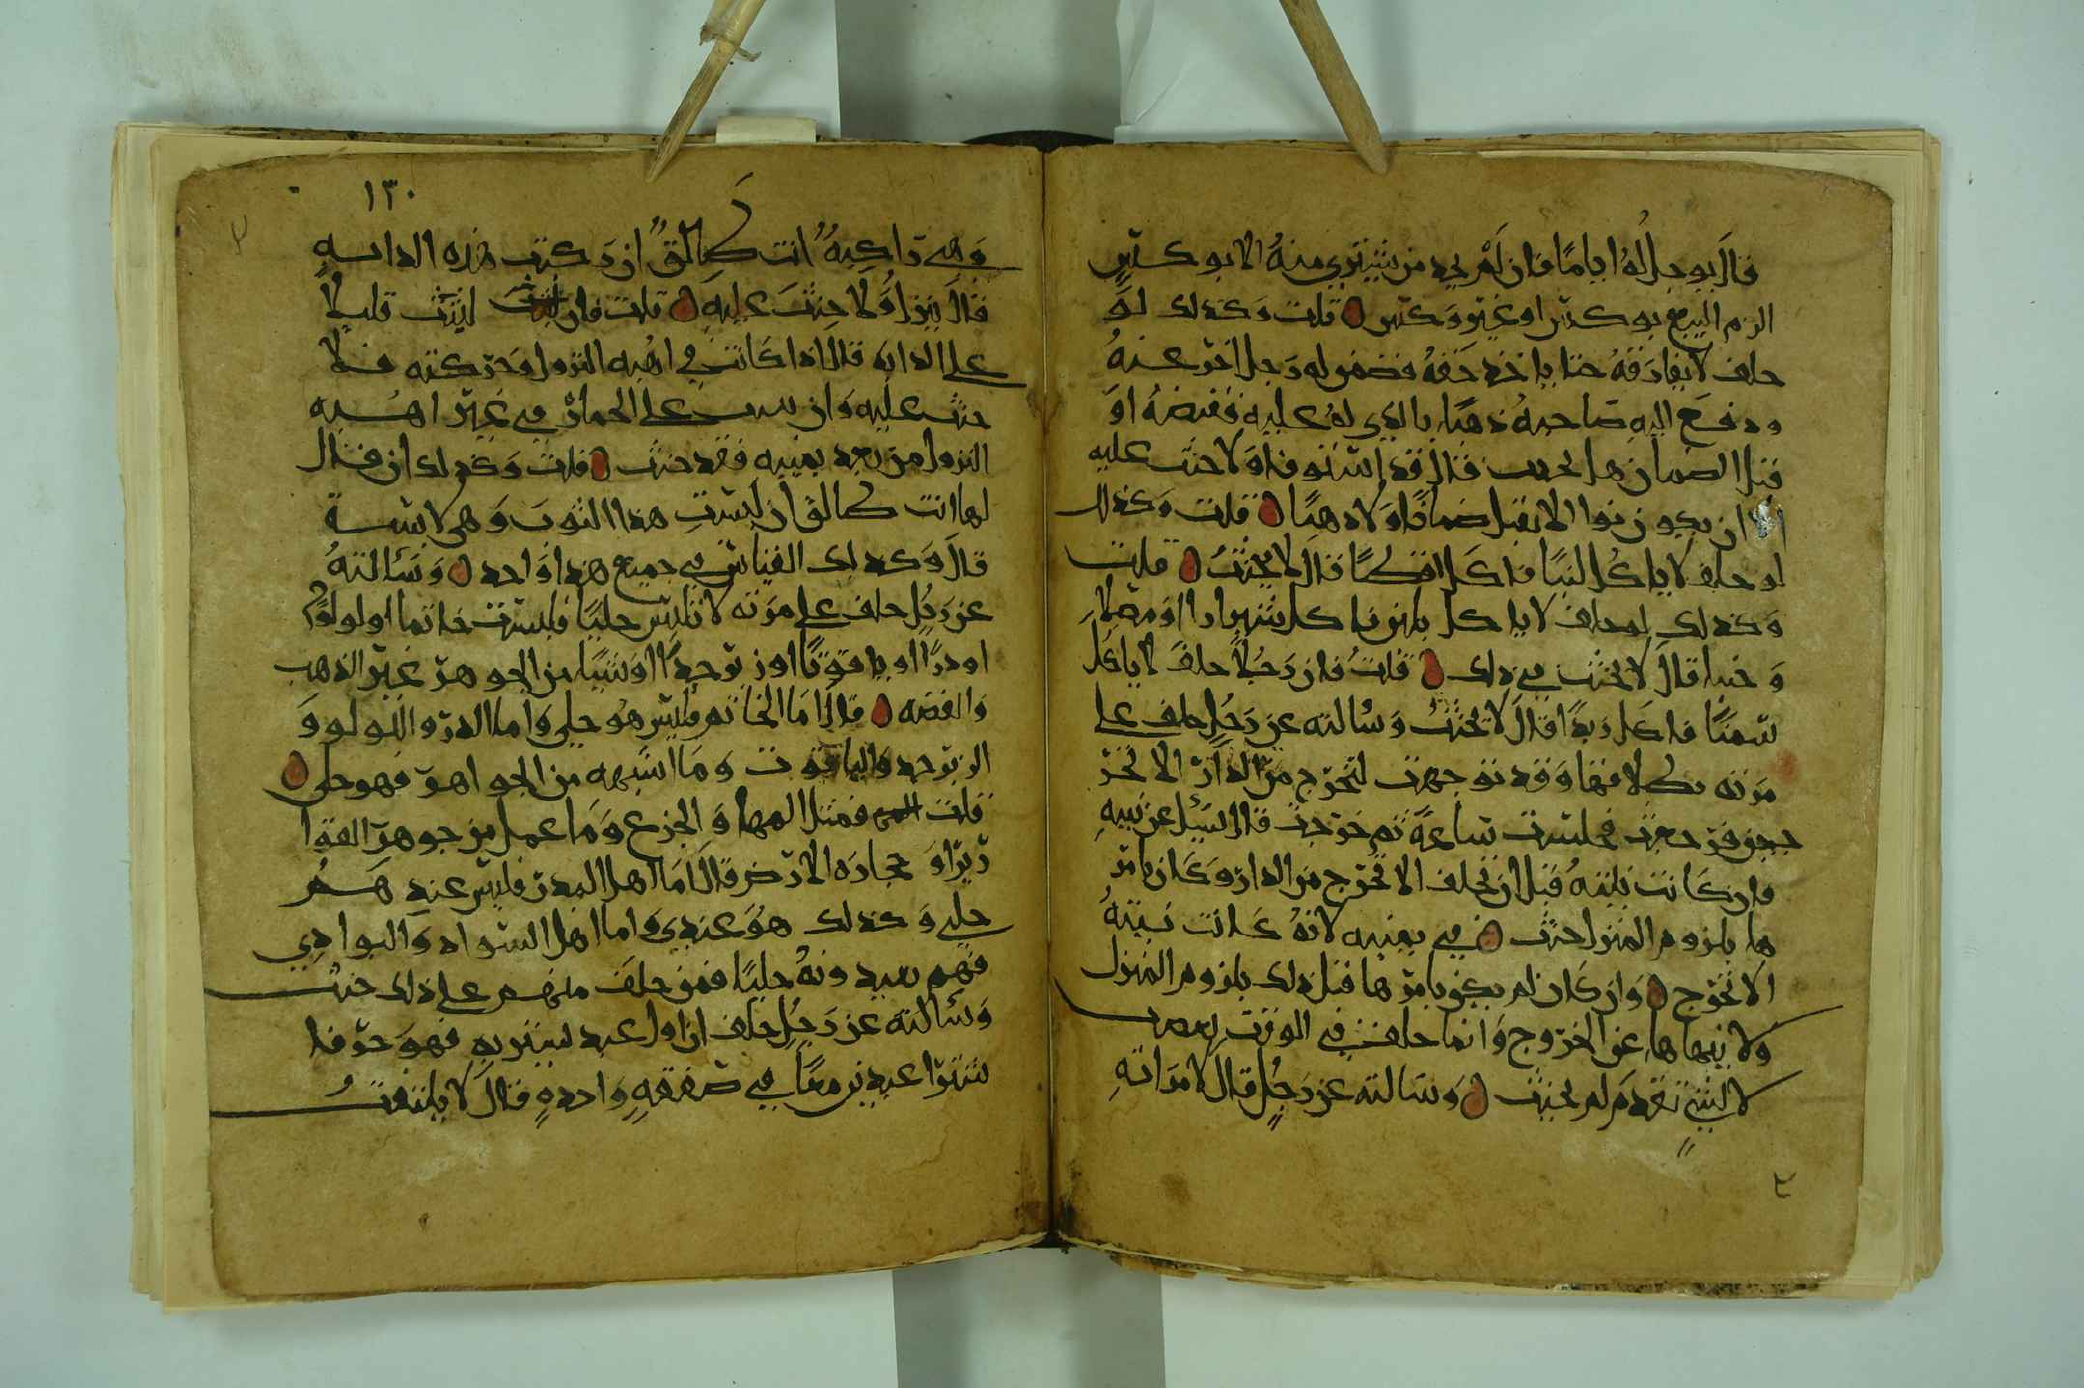 قال يوجل له اياما فان لم يجد من يشتري منه الا بوكس
الزم البيع بوكس او غير وكس قلت وكذلك لو
حلف لا يفارقه حتا ياخذ حقه فضمن له رجل اخر عنه
ودفع اليه صاحبه رهنا بالذي له عليه فقبضه او
قبل الضمان هل يحنث قال قد استوفا ولا حنث عليه
الا ان يكون نوا الا يقبل ضمانا ولا رهنا قلت وكذلك
لو حلف لا ياكل لبنا فاكل اقطا قال لا يحنث قلت
وكذلك لو حلف لا ياكل فاكل شيرازا او مصلا
وجبنا قال لا يحنث في ذلك قلت فان رجلا حلف لا ياكل
سمنا فاكل زبدا قال لا يحنث وسالته عن رجل حلف على
مرته بطلاقها وقد توجهت لتخرج من الدار الا تخرج
فرجعت فجلست ساعة ثم خرجت قال يسئل عن نيته
فان كانت نيته قبل ان يحلف الا تخرج من الدار وكان يامر
ها بلزوم المنزل حنث في يمينه لانه كانت نيته
الا تخرج وان كان لم يكن يامرها قبل ذلك بلزوم المنزل
ولا ينهاها عن الخروج وانما حلف في الوقت لغضب
لا لشي تقدم لم يحنث وسالته عن رجل قال لامراته
١٣٠
وهي راكبة انت طالق ان ركبت هذه الدابة
قال ينزل ولا حنث عليه قلت فان لبثت قليلا
على الدابه قال اذا كانت في اهبه النزول وحركته فلا
حنث عليه وان على الحمار في غير اهبه
النزول من بعد يمينه فقد حنث قلت وكذلك ان قال
لها انت طالق ان لبست هذا الثوب وهي لابسة
قال وكذلك القياس في جميع هذا واحد وسالته
عن رجل حلف على مرته لا تلبس حليا فلبست خاتما او لولوا
او درا او ياقوتا او زبرجدا او شيا من الجوهر غير الذهب
والفضه قال اما الخاتم فليس هو حلي واما الدر واللولو و
الزبرجد والياقوت وما اشبهه من الجواهر فهو حلي
قلت فمثل المها والجزع وما عمل من جوهر القوا
رير او حجارة الارض قال اما اهل المدر فليس عندهم
حلي وكذلك هو عندي واما اهل السواد والبوادي
فهم يعيدونه حليا فمن حلف منهم على ذلك حنث
وسالته عن رجل حلف ان اول عبد يشتريه فهو حر فا
شترا عبدين معا في صفقه واحده قال لا يلتفت